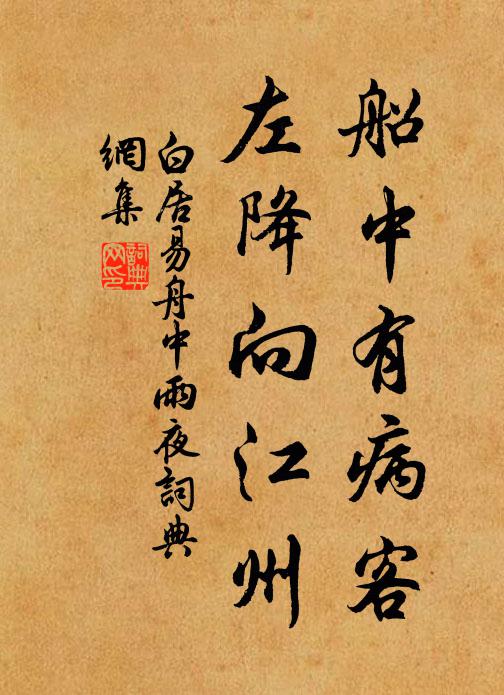 船中有病客
左降向江州
白居易舟中雨夜詞典
網集
詞典
网印